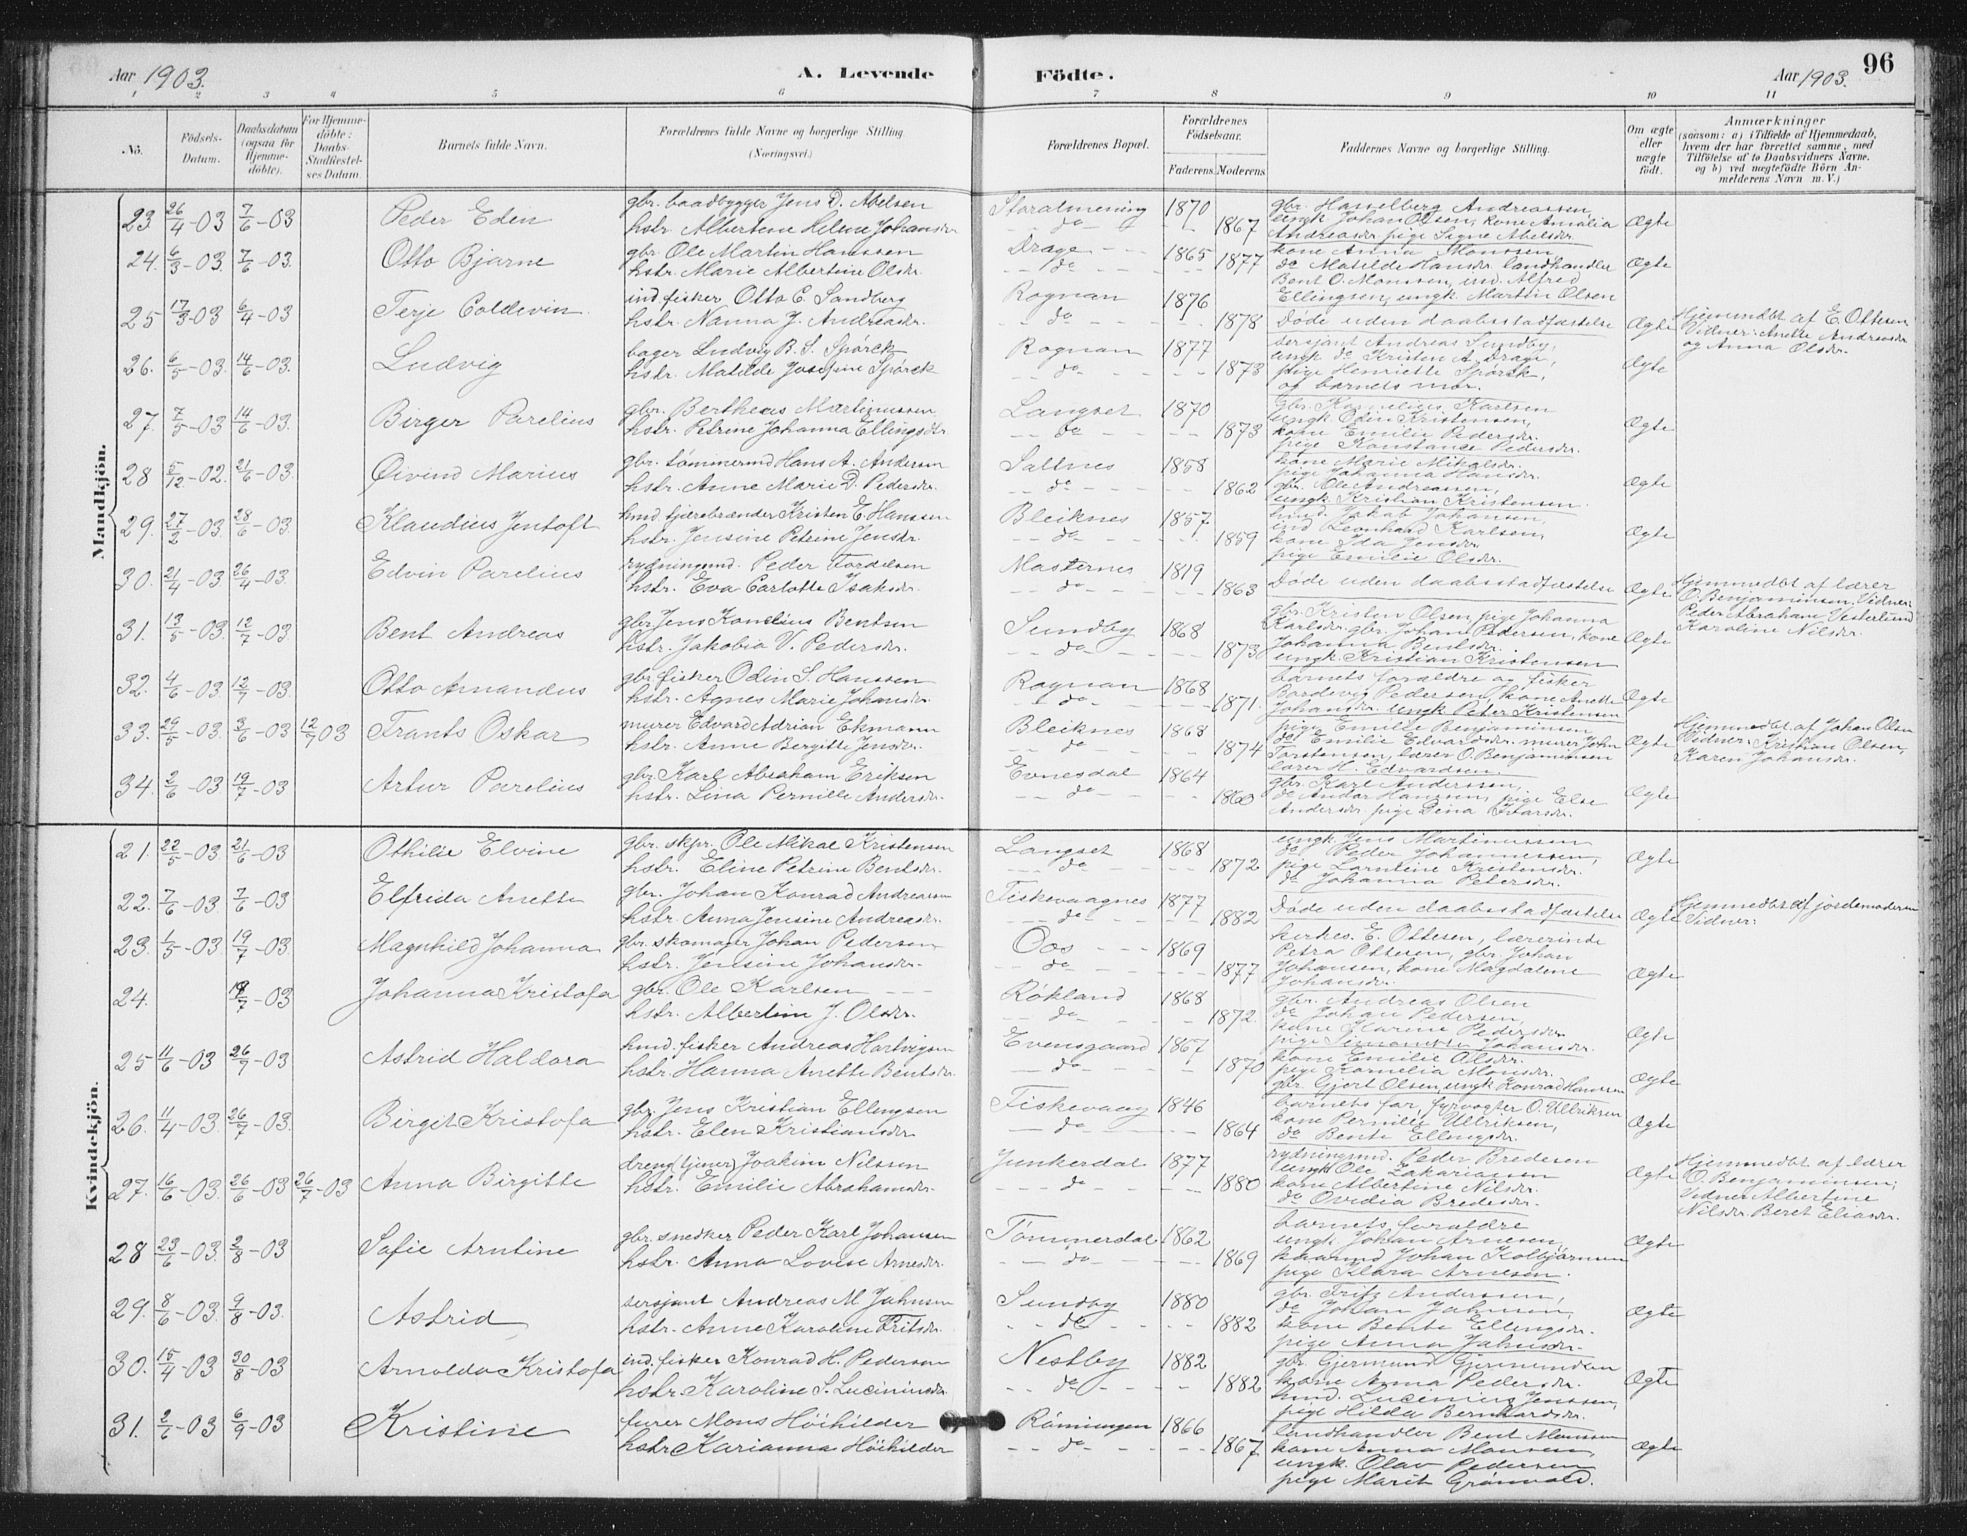 Aar 1903. A. Levende Födte. Aar 1903. 96
1 2 3 4 5 6 7 8 9 10 11
No. Födsels-Datum. Daabsdatum (ogsaa for Hjemmedöbte). For Hjemmedöbte: Daabs-Stadfæstelses Datum. Barnets fulde Navn. Forældrenes fulde Navne og borgerlige Stilling (Næringsvei.) Forældrenes Bopæl. Forældrenes Födselsaar. Faderens Moderens Faddernes Navne og borgerlige Stilling. Om ægte eller uægte födt. Anmærkninger (saasom: a) i Tilfælde af Hjemmedaab, hvem der har forrettet samme, med Tilföielse af to Daabsvidners Navne. og b) ved uægtefödte Börn Anmelderens Navn m. V.)
Mandkjön.
23. 26/4-03 7/6-03 Peder Eden gbr. baadbygger Jens D. Abelsen Storalmening 1870 gbr. Hasselberg Andreassen
hstr. Albertine Helene Johansdr. do 1867 ungk Johan Olsen, kone Amalia Ægte
Andreasdr. pige Signe Abelsdr.
24. 6/3-03. 7/6-03. Otto Bjarne gbr. Ole Martin Hanssen Drage 1865 kone Anna Monssen
hstr. Marie Albertine Olsdr. do 1877 do Matilde Hansdr. landhandler Ægte
Bent O. Monssen, ind. Alfred
25 17/3-03 6/4-03 Terje Coldevin ind. fisker Otto E. Sandberg Rognan 1876 Ellingsen, ungk. Martin Olsen
hstr. Nanna J. Andreasdr. do 1878 Døde uden daabsstadfæstelse Ægte Hjemmedbt af E. Ottesen
Vidner: Anette Andreasdr
og Anna Olsdr.
26. 6/5-03. 14/6-03. Ludvig bager Ludvig B. S. Spørck Rognan 1877 sersjant Andreas Sundby,
hstr. Matilde Josefine Spørck do 1873 ungk do Kristen A. Drage, Ægte
pige Henriette Spørck,
og barnets mor.
27. 7/5-03 14/6-03. Birger Parelius gbr. Bertheus Martinussen Langset 1870 gbr. Kornelius Karlsen
hstr. Petrine Johanna Ellingsdr. do 1873 ungk Odin Kristensen, Ægte
kone Emilie Pedersdr.
pige Konstanse Pedersdr.
28 5/12-02. 21/6-03. Øivind Marius gbr. tømmermd Hans A. Andersen Saltnes 1858 kone Marie Mikalsdr.
hstr. Anne Marie D. Pedersdr. do 1862 pige Johanna Hansdr. Ægte
gbr. Ole Andreassen,
ungk. Kristian Kristensen.
29. 27/2-03. 28/6-03. Klaudius Jentoft hmd tjærebrænder Kristen E. Hanssen Bleiknes 1857 hmd. Jakob Johansen,
hstr. Jensine Petrine Jensdr. do 1859 ind Leonhard Karlsen, Ægte
kone Ida Jensdr.
pige Emilie Olsdr.
30. 21/4-03 26/4-03. Edvin Parelius rydningsmd. Peder Tordelsen Masternes 1819
hstr. Eva Carlotte Isaksdr. do 1863 Døde uden daabsstadfæstelse Ægte Hjemmedbt af lærer
O. Benjaminsen, Vidner:
Peder Abraham Vesterlund
Karoline Nilsdr.
31. 13/5-03. 12/7-03. Bent Andreas gbr. Jens Konelius Bentsen Sundby 1868 gbr. Kristen Olsen, pige Johanna
hstr. Jakobia V. Pedersdr. do 1873 Karlsdr. gbr. Johan Pedersen, kone Ægte
Johanna Bentsdr.
ungk. Kristian Kristensen
32. 4/6-03. 12/7-03. Otto Amandus gbr. fisker Odin S. Hanssen Rognan 1868 barnets forældre og fisker
hstr. Agnes Marie Johansdr. do 1871. Bardevig Pedersen, kone Anette Ægte
Johansdr. ungk Peter Kristensen
33. 29/5-03. 3/6-03 12/7 03 Frants Oskar murer Edvard Adrian Ekmann Bleiknes 1868 pige Emilie Benjaminsen
hstr. Anne Bergitte Jensdr. do 1874 do Emilie Edvardsdr. murer John Ægte Hjemmedbt af Johan Olsen
Torstensen, lærer O. Benjaminsen Vidner: Kristian Olsen,
lærer H. Edvardsen. Karen Johansdr.
34. 2/6-03 19/7-03 Artur Parelius gbr. Karl Abraham Eriksen Evnesdal 1864 gbr. Karl Anderssen,
hstr. Lina Pernille Andersdr. do 1860 do Andor Hanssen, pige Else Ægte
Andersdr. pige Dina Ivarsdr.
Kvindekjön.
21. 22/5-03 21/6-03 Othilie Elvine gbr. skpr. Ole Mikal Kristensen Langset 1868 ungk Jens Martinussen
hstr. Eline Petrine Bentsdr. do 1872 do Peder Johannessen, Ægte
pige Larntine Kristensdr.
do Johanna Petersdr.
22. 7/6-03. 7/6-03. Elfrida Anette gbr. Johan Konrad Andreassen Fiskevaagnes 1877
hstr. Anna Jensine Andreasdr. do 1882 Døde uden daabsstadfæstelse Ægte Hjemmedbt af jordemoderen
Vidner:
23. 1/5-03. 19/7-03. Magnhild Johanna gbr. skomager Johan Pedersen Oos 1869 kirkes. E. Ottesen, lærerinde
hstr. Jensine Johansdr. do 1877 Petra Ottesen, gbr. Johan Ægte
Johansen, kone Magdalene
Johansdr.
24. 19/7-03 Johanna Kristofa gbr. Ole Karlsen Røkland 1868 gbr. Andreas Olsen
hstr. Albertine J. Olsdr. do 1872. do Johan Pedersen, Ægte
kone Karine Pedersdr.
pige Johansdr.
25 11/6-03 26/7-03 Astrid Haldora hmd. fisker Andreas Hartvigsen Evensgaard 1867 kone Emilie Olsdr.
hstr. Hanna Anette Bentsdr. do 1870 pige Kornelia Monsdr. Ægte
gbr. Gjert Olsen, ungk. Konrad Hanssen
26. 11/4-03. 26/7-03. Birgit Kristofa gbr. Jens Kristian Ellingsen Fiskevaag 1846 barnets far, fyrvogter O. Ullriksen
hstr. Elen Kristiansdr. do 1864 kone Pernille Ullriksen, Ægte
do Bente Ellingsdr.
27. 16/6-03. 26/6-03 26/7-03 Anna Birgitte dreng (tjener) Joakim Nilssen Junkerdal 1877 rydningsmd. Peder Bredesen
hstr. Emilie Abrahamsdr. do 1880 ungk Ole Zakariassen Ægte Hjemmedbt af lærer
kone Albertine Nilsdr. O. Benjaminsen;
do Ovidia Bredesdr. Vidner Albertine
Nilsdr. Beret Eliasdr.
28 23/6-03. 2/8-03 Sofie Arntine gbr. snedker Peder Karl Johansen Tømmerdal 1862 barnets forældre
hstr. Anna Lovise Arnesdr. do 1869 ungk Johan Arnesen, Ægte
kaarmd Johan Kolbjørnsen
pige Klara Arnesen.
29. 8/6-03. 9/8-03. Astrid sersjant Andreas M. Jahnsen Sundby 1880 gbr. Fritz Anderssen,
hstr. Anne Karoline Fritsdr. do 1882 do Johan Jahnsen, Ægte
kone Bente Ellingsdr.
pige Anna Jahnsdr.
30. 15/4-03 30/8-03. Arnolda Kristofa ind. fisker Konrad H. Pedersen Nestby 1882 gbr. Gjermund Gjermundsen
hstr. Karoline S. Luciniusdr. do 1882 kone Anna Pedersdr. Ægte
hmd. Lucinius Jenssen,
pige Hilda Bernhardsdr.
31. 2/6-03 6/9-03. Kristine furer Mons Höihilder Rönningen 1866 landhandler Bent Monssen
hstr Karianna Höihilder do 1867 kone Anna Monssen, Ægte
ungk. Olav Pedersen
pige Marit Grönvold.